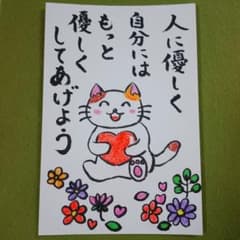 人に優しく
自分には
もっと
優しく
してあげよう